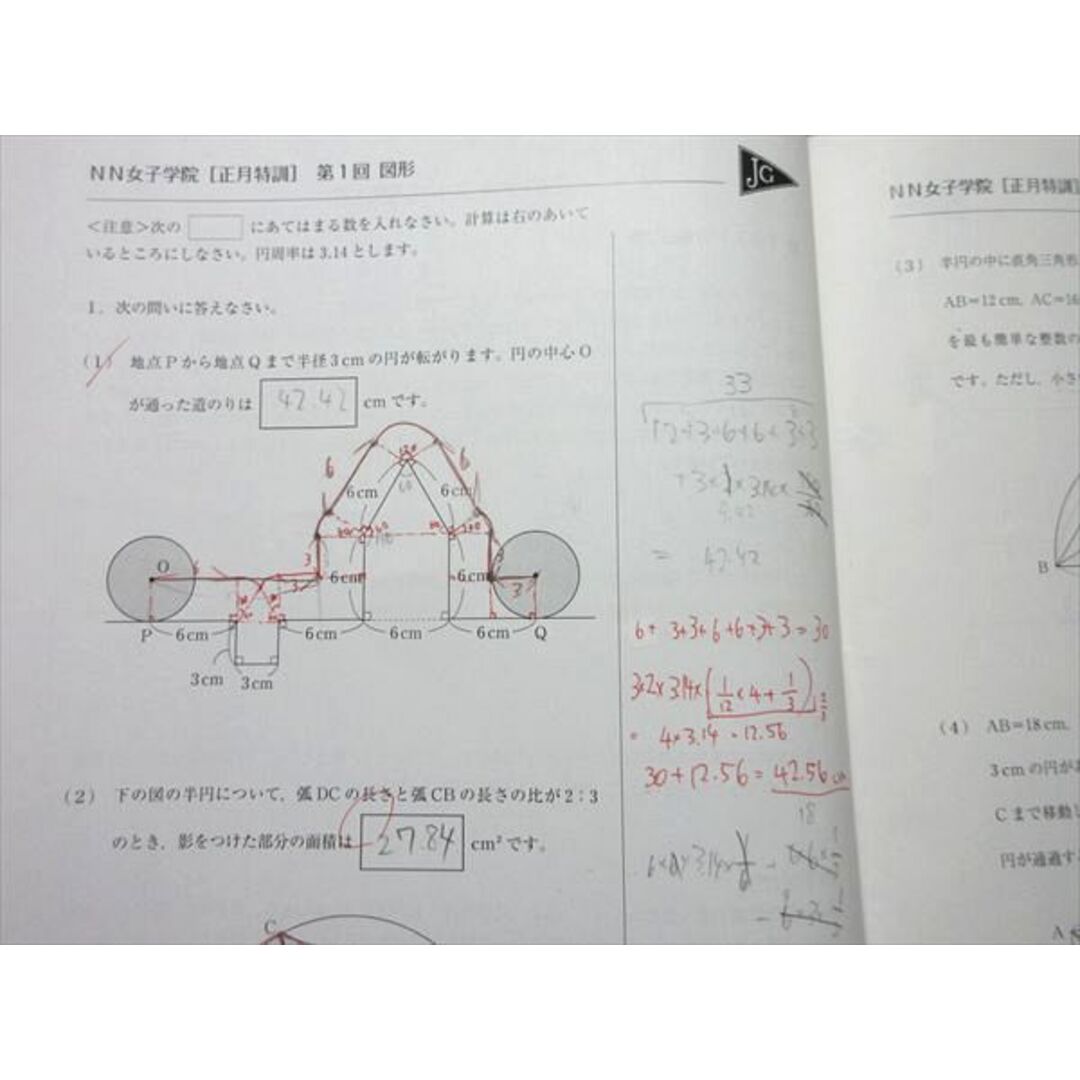 NN女子学院［正月特訓］ 第1回 図形
JG
＜注意＞次の　　　にあてはまる数を入れなさい。計算は右のあいて
いるところにしなさい。円周率は3.14とします。
1．次の問いに答えなさい。
（1） 地点Pから地点Qまで半径3cmの円が転がります。円の中心O
が通った道のりは 42.42 cmです。
6 6
6cm 6cm
O 3 6cm 6cm 3
P 6cm 6cm 6cm 6cm Q
3cm 3cm
33
= 42.42
6+3+3+6+6+3+3=30
3×2×3.14×(1/12×4+1/3)
= 4×3.14=12.56
30+12.56=42.56cm
（2） 下の図の半円について，弧DCの長さと弧CBの長さの比が2：3
のとき，影をつけた部分の面積は 27.84 cm²です。
18
C
NN女子学院［正月特訓］
（3） 半円の中に直角三角形
AB＝12cm，AC＝16
を最も簡単な整数の
です。ただし，小さ
B
（4） AB＝18cm，
3cmの円があ
Cまで移動し
円が通過す
A